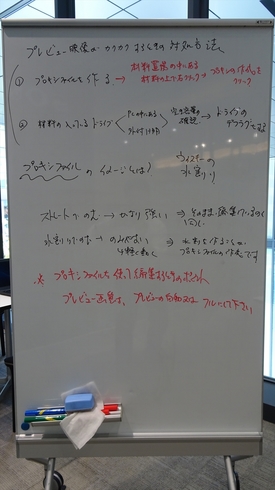 プレビュー映像がカクカクする時の対処方法
① プロキシファイルを作る → 材料置場の中にある 材料の上で右クリック → プロキシの作成をクリック
② 材料の入っているドライブ PCの中にある 外付けHDD 空き容量の確認 → ドライブのデフラグをする
プロキシファイルのイメージとは? ウイスキーの水割り
ストレートのむ → かなり強い ⇒ そのまま編集している
水割りでのむ → のみやすい ⇒ 水割りを作ることが プロキシファイルの作成です
※ プロキシファイルを使って編集する時のポイント
プレビュー画質は、プレビューの フルにして下さい